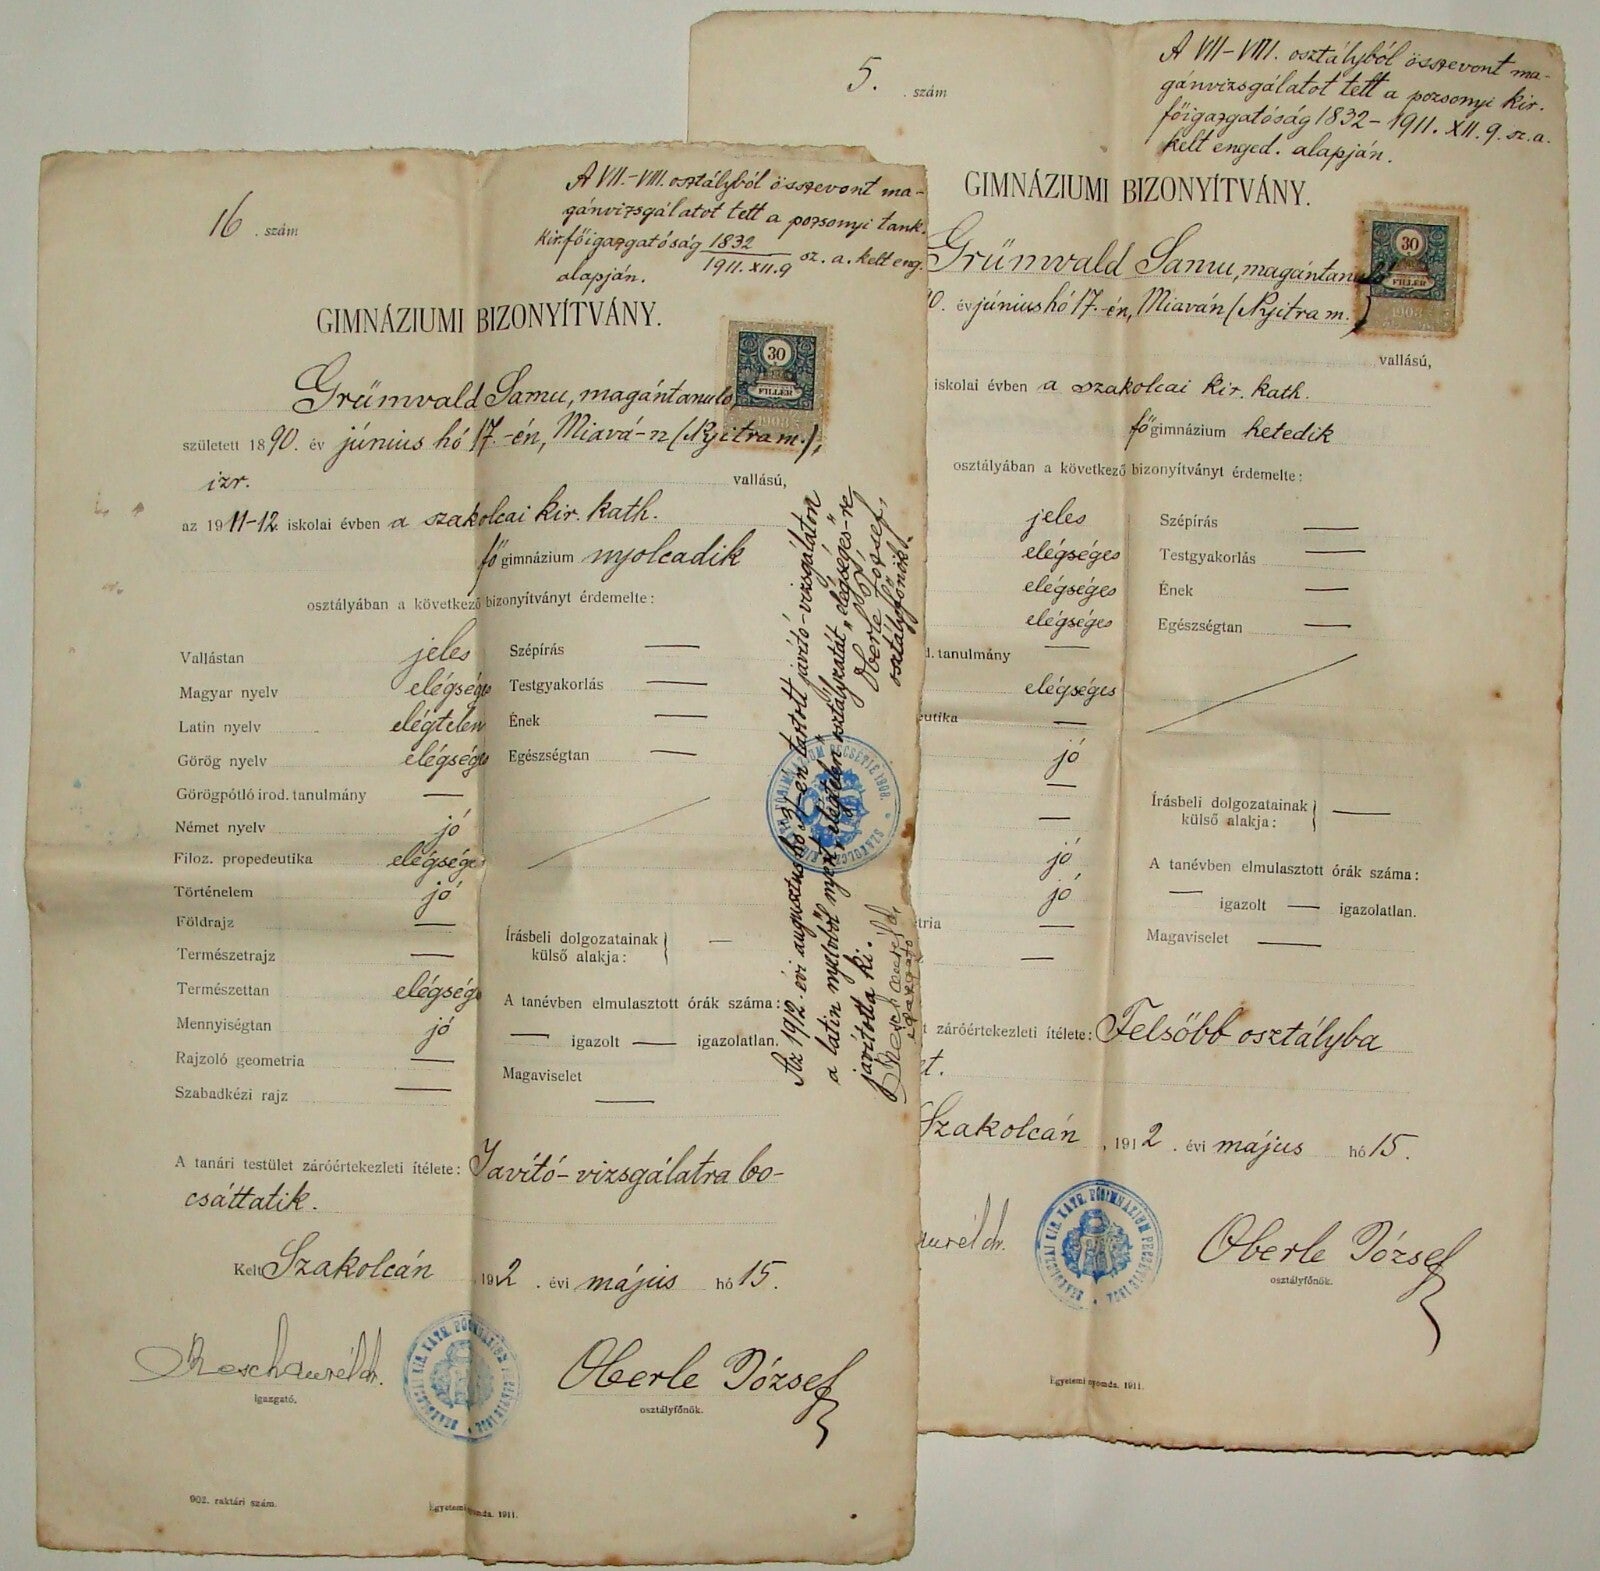 16 . szám
A VII.-VIII. osztályból összevont ma-
gánvizsgálatot tett a pozsonyi tank.
kir. főigazgatóság 1832
1911. XII. 9 sz. a. kelt eng.
alapján.
GIMNÁZIUMI BIZONYÍTVÁNY.
30
FILLÉR
1903
Grümvald Samu, magántanuló,
született 1890. év június hó 17.-én, Miavá-n (Nyitra m.),
izr. vallású,
az 1911-12. iskolai évben a szakolcai kir. kath.
főgimnázium nyolcadik
osztályában a következő bizonyítványt érdemelte:
Vallástan jeles
Magyar nyelv elégséges
Latin nyelv elégtelen
Görög nyelv elégséges
Görögpótló irod. tanulmány —
Német nyelv jó
Filoz. propedeutika elégséges
Történelem jó
Földrajz —
Természetrajz —
Természettan elégség
Mennyiségtan jó
Rajzoló geometria —
Szabadkézi rajz —
Szépírás —
Testgyakorlás —
Ének —
Egészségtan —
Írásbeli dolgozatainak
külső alakja: —
A tanévben elmulasztott órák száma:
— igazolt — igazolatlan.
Magaviselet —
A tanári testület záróértekezleti ítélete: Javító-vizsgálatra bo-
csáttatik.
Kelt Szakolcán , 1912 . évi május hó 15.
Resch Aurél dr.
igazgató.
Oberle József
osztályfőnök.
902. raktári szám.
Egyetemi nyomda. 1911.
Az 1912. évi augusztus hó 31-én tartott javító-vizsgálaton
a latin nyelvből nyert „elégtelen" osztályzatát „elégséges"-re
javította ki.
Resch Aurél d.
igazgató
Oberle József,
osztályfőnök.
5. . szám
A VII-VIII. osztályból összevont ma-
gánvizsgálatot tett a pozsonyi kir.
főigazgatóság 1832-1911. XII. 9. sz. a.
kelt enged. alapján.
GIMNÁZIUMI BIZONYÍTVÁNY.
30
FILLÉR
1903
Grümvald Samu, magántanuló
0. év június hó 17.-én, Miaván (Nyitra m.)
vallású,
iskolai évben a szakolcai kir. kath.
főgimnázium hetedik
osztályában a következő bizonyítványt érdemelte:
jeles
elégséges
elégséges
elégséges
d. tanulmány —
elégséges
eutika —
jó
—
—
jó
jó
tria —
—
Szépírás —
Testgyakorlás —
Ének —
Egészségtan —
Írásbeli dolgozatainak
külső alakja: —
A tanévben elmulasztott órák száma:
— igazolt — igazolatlan.
Magaviselet —
t záróértekezleti ítélete: Felsőbb osztályba
et.
Szakolcán , 1912 . évi május hó 15.
Aurél dr.
Oberle József
osztályfőnök.
Egyetemi nyomda. 1911.